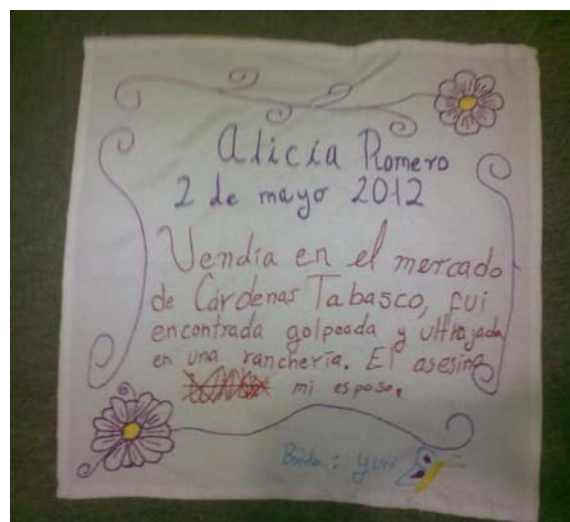 Alicia Romero
2 de mayo 2012
Vendía en el mercado
de Cárdenas Tabasco, fui
encontrada golpeada y ultrajada
en una ranchería. El asesino
mi esposo.
: Yuri